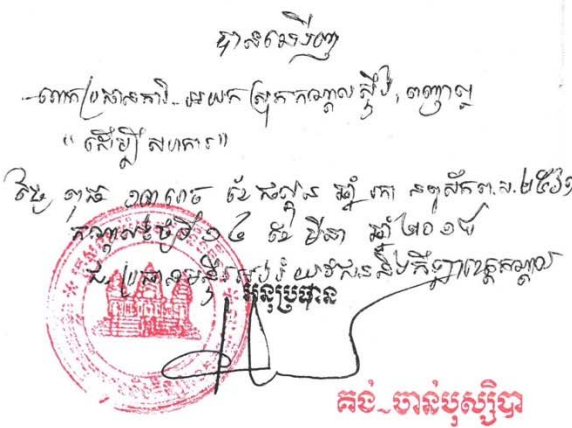 បានឃើញ
-លោកប្រធានការិ. អយក ស្រុកកណ្តាលស្ទឹង, ពញាឮ
"ដើម្បីសហការ"
ថ្ងៃ ពុធ ១៣រោច ខែ ផល្គុន ឆ្នាំ រកា នព្វស័ក ព.ស.២៥៦១
កណ្តាល ថ្ងៃទី ១៤ ខែ មីនា ឆ្នាំ ២០១៨
ជ. ប្រធានមន្ទីរអប់រំ យុវជន និងកីឡាខេត្តកណ្តាល
អនុប្រធាន
គង់-ចាន់បុស្បិបា